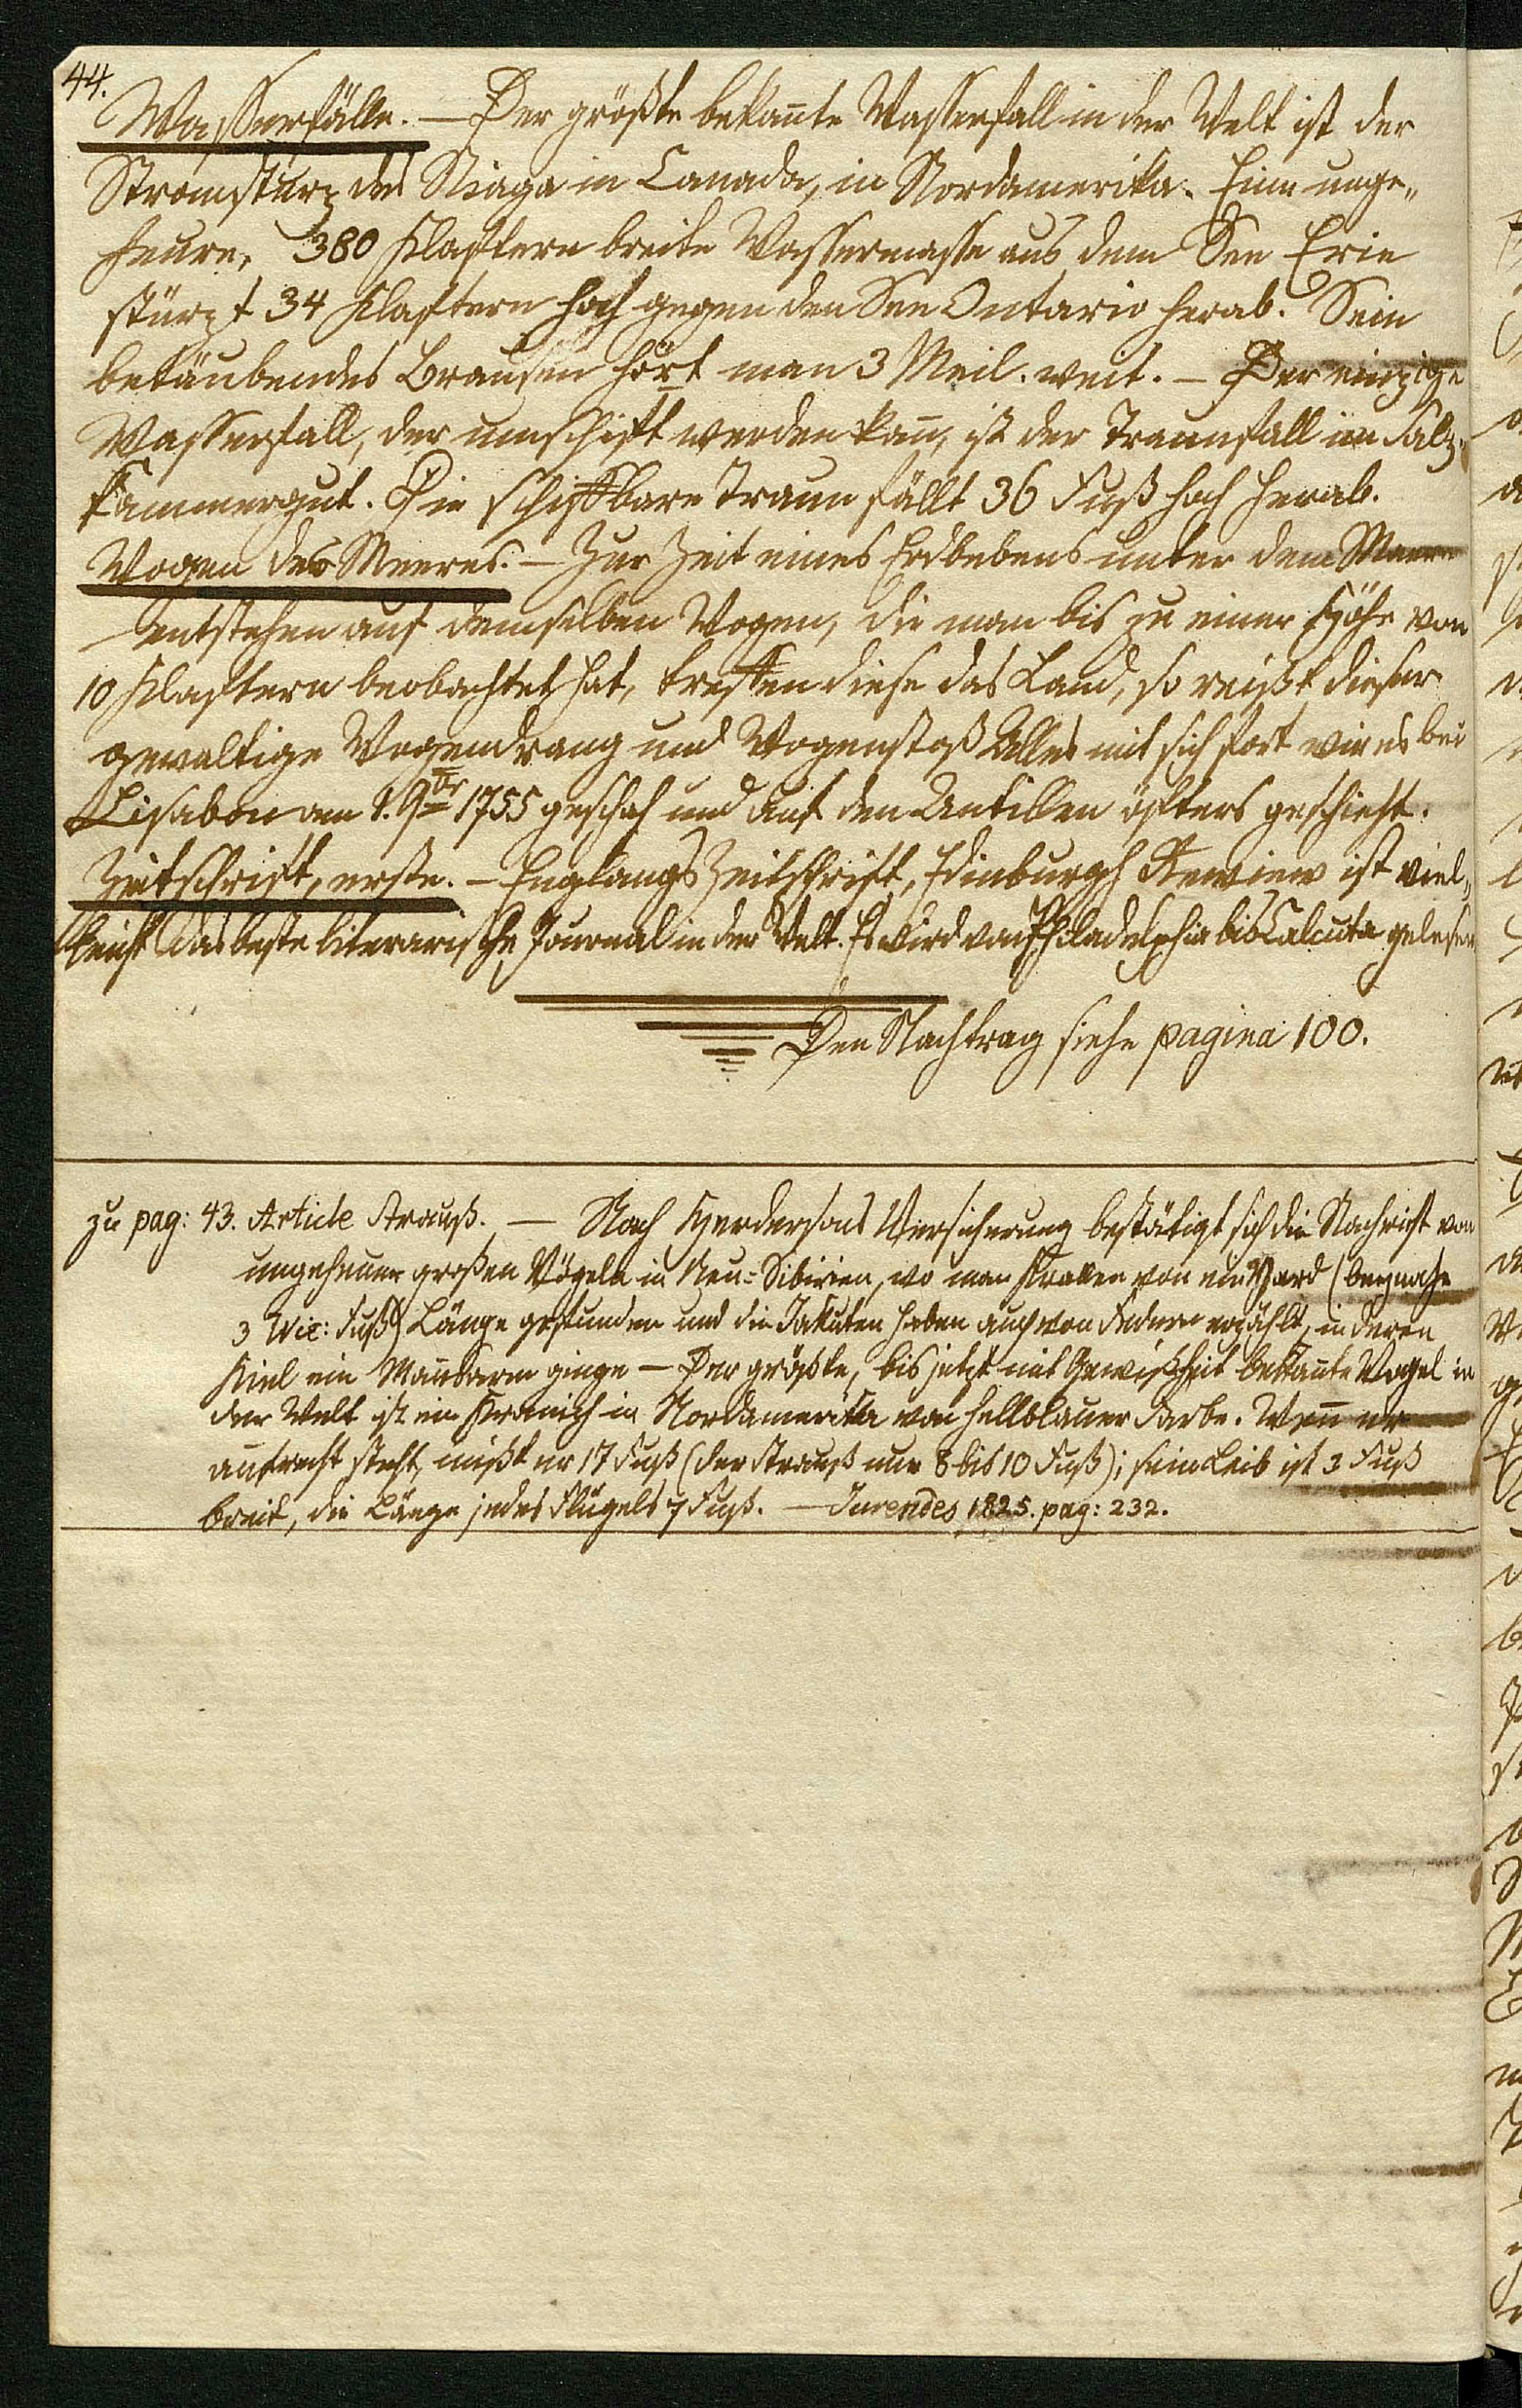 44.
Wasserfälle. — Der größte bekan̄te Wasserfall in der Welt ist der
Stromsturz des Niaga in Canada, in Nordamerika. Eine unge„
heure, 380 Klaftern breite Wassermasse aus dem See Erie
stürzt 34 Klaftern hoch gegen den See Ontario herab. Sein
betäubendes Brausen hört man 3 Meil. weit. — Der einzige
Wasserfall, der umschift werden kan̄, ist der Traunfall im Salz„
kammergut. Die schiffbare Traun fällt 36 Fuß hoch herab.
Wogen des Meeres. — Zur Zeit eines Erdbebens unter dem Meere
entstehen auf demselben Wogen, die man bis zu einer Höhe von
10 Klaftern beobachtet hat, treffen diese das Land, so reißt dieser
gewaltige Wogendrang und Wogenstoß Alles mit sich fort wie es bei
Lisabon am 1. 9br 1755 geschah und auf den Antillen öfters geschieht.
Zeitschrift, erste. — Englangs Zeitschrift, Edinburgh Rewiew ist viel„
leicht das beste literarische Journal in der Welt. Es wird von Philadelphia bis Calcuta gelesen
Den Nachtrag siehe pagina 100.
zu pag: 43. Article Strauß. — Nach Hendersons Versicherung bestätigt sich die Nachricht von
ungeheuer großen Vögeln in Neu=Sibirien, wo man Krallen von ein Yard (beynahe
3 Wie: Fuß) Länge gefunden und die Jakuten haben auch von Federn erzählt, in deren
Kiel ein Man̄sarm ginge — Der größte, bis jetzt mit Gewißheit bekan̄te Vogel in
der Welt ist ein Kranich in Nordamerika von hellblauer Farbe. Wen̄ er
aufrecht steht, mißt er 17 Fuß (der Strauß nur 8 bis 10 Fuß); sein Leib ist 3 Fuß
breit, die Länge jedes Flügels 7 Fuß. — Jurendes 1825. pag: 232.